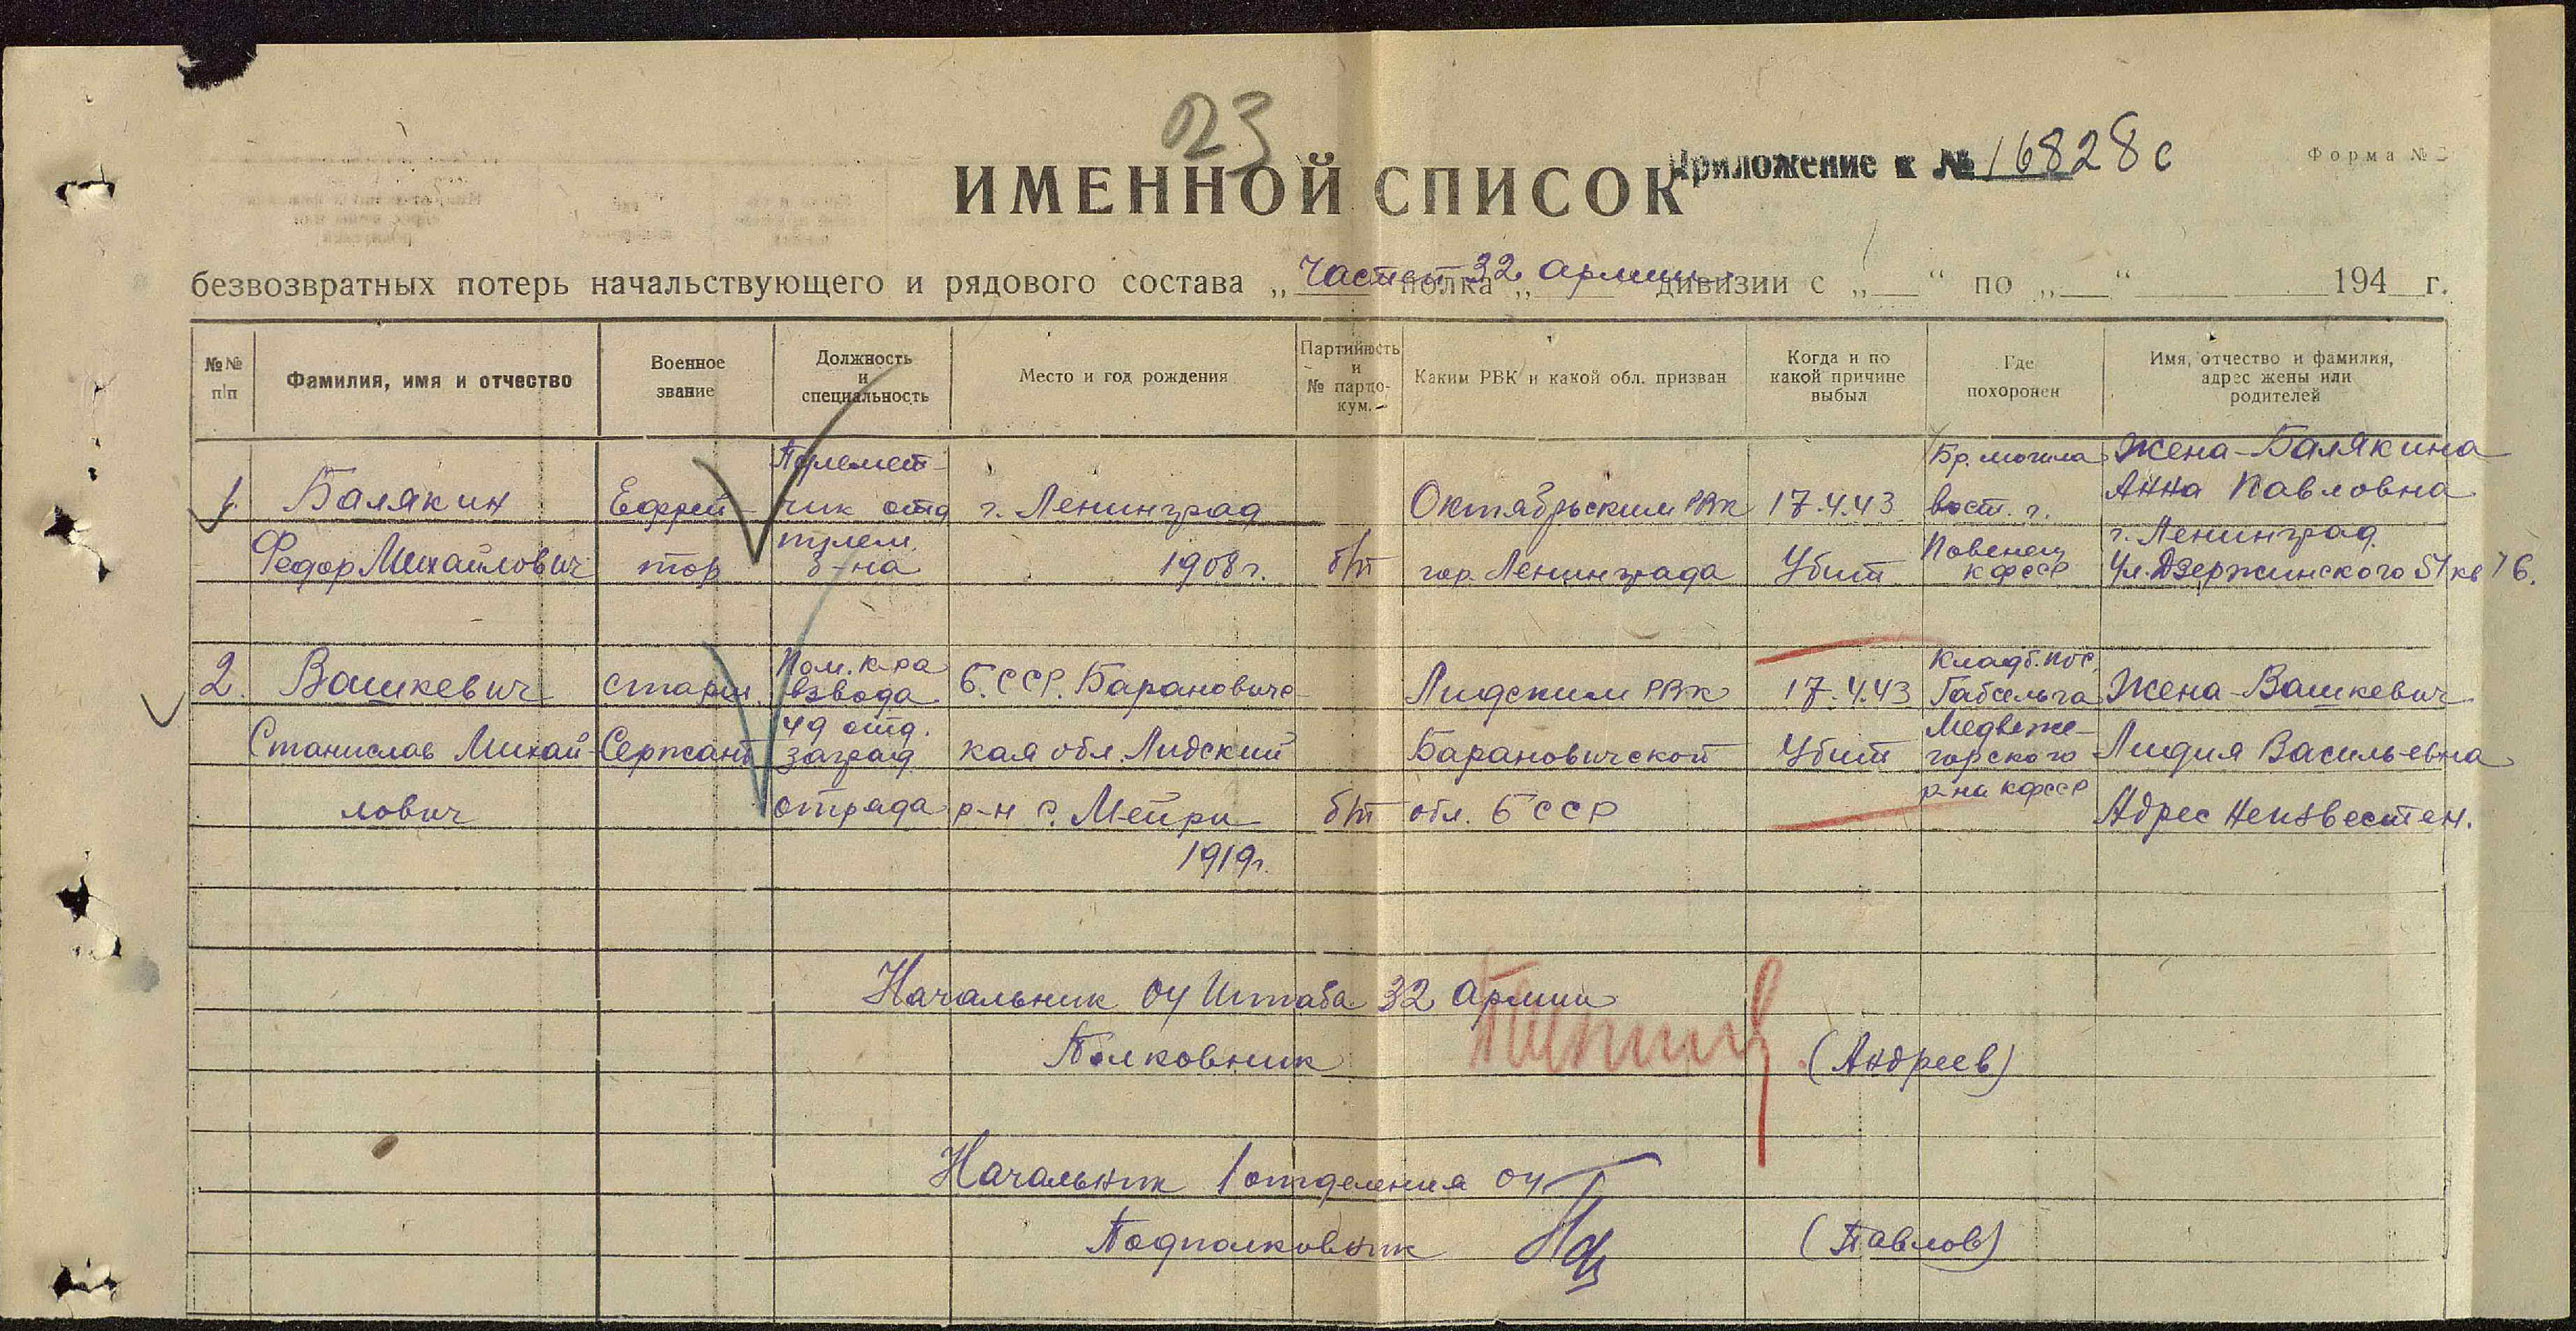 023
Приложение к № 16828с
Форма № 2
ИМЕННОЙ СПИСОК
безвозвратных потерь начальствующего и рядового состава „ частей 32 армии полка „ дивизии с „ “ по „ “ 194 г.
№№ п/п
Фамилия, имя и отчество
Военное звание
Должность и специальность
Место и год рождения
Партийность и № партдокум.
Каким РВК и какой обл. призван
Когда и по какой причине выбыл
Где похоронен
Имя, отчество и фамилия, адрес жены или родителей
1. Балякин
Федор Михайлович
Ефрей-
тор
Пулемет-
чик отд
пулем.
б-на
г. Ленинград
1908 г.
б/п
Октябрьским РВК
гор. Ленинграда
17.4.43
Убит
Бр. могила
вост. г.
Повенец
КФССР
Жена-Балякина
Анна Павловна
г. Ленинград
Ул. Дзержинского 54 кв 76.
2. Вашкевич
Станислав Михай-
лович
старш.
Сержант
Пом. к-ра
взвода
49 отд.
заград.
отряда
Б.ССР. Барановичс-
кая обл. Лидский
р-н с. Мейри
1919 г.
б/п
Лидским РВК
Барановичской
обл. БССР
17.4.43
Убит
Кладб. пос.
Габсельга
Медвеже-
горского
р-на КФССР
Жена-Вашкевич
Лидия Васильевна
Адрес Неизвестен.
Начальник ОУ Штаба 32 Армии
Полковник (Андреев)
Начальник 1 отделения ОУ
Подполковник (Павлов)